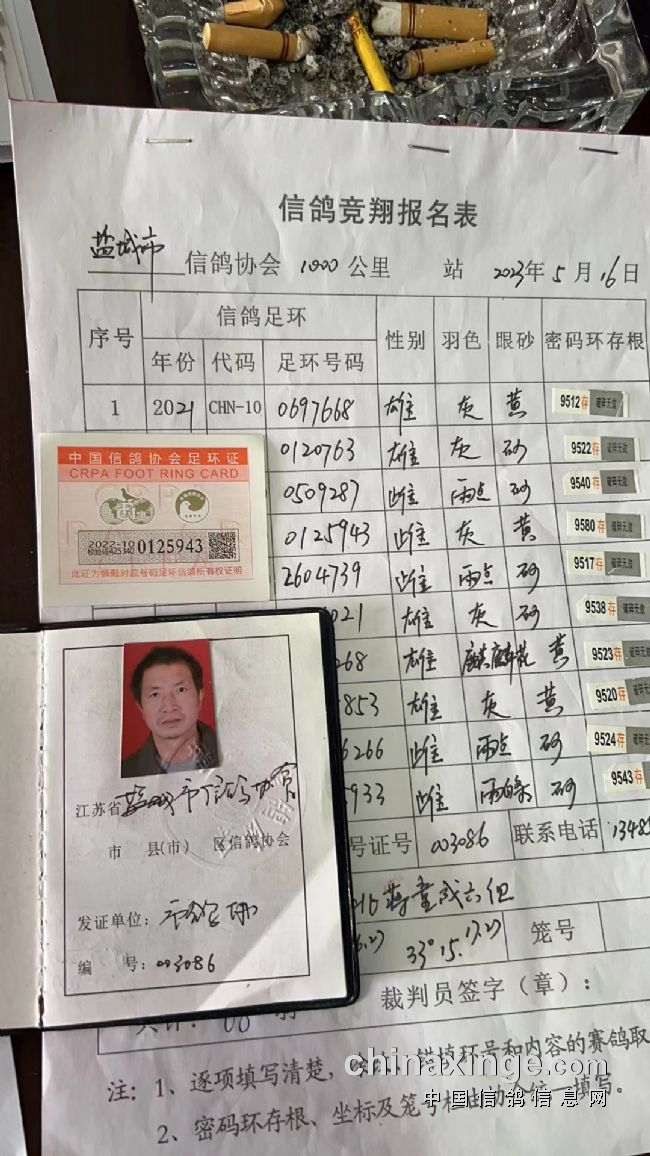 信鸽竞翔报名表
盐城市 信鸽协会 1000 公里 站 2023年 5 月 16 日
序号 信鸽足环 性别 羽色 眼砂 密码环存根
年份 代码 足环号码
1 2021 CHN-10 0697668 雄 灰 黄 9512存 破碎无效
0120763 雄 灰 砂 9522存 破碎无效
0509287 雌 雨点 砂 9540存 破碎无效
0125943 雌 灰 黄 9580存 破碎无效
2604739 雌 雨点 砂 9517存 破碎无效
021 雄 灰 砂 9538存 破碎无效
268 雄 麒麟花 黄 9523存 破碎无效
853 雄 灰 黄 9520存 破碎无效
6266 雌 雨点 砂 9524存 破碎无效
933 雌 雨白条 砂 9543存 破碎无效
号证号 003086 联系电话 1348
33°15. 17.27 笼号
裁判员签字（章）：
注：1、逐项填写清楚， 环号和内容的赛鸽取
2、密码环存根、坐标及笼号栏由 统一填写。
中国信鸽协会足环证
CRPA FOOT RING CARD
2022-10 0125943
此证为佩戴对应号码足环信鸽所有权证明
江苏省盐城市信鸽协会
市 县(市) 区信鸽协会
发证单位：
编 号：003086
chinaxinge.com
中国信鸽信息网